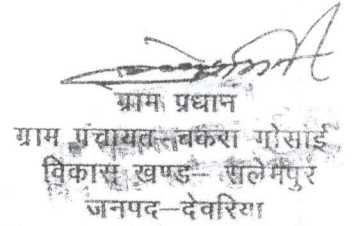 ग्राम प्रधान
ग्राम पंचायत चकरा गोसाई
विकास खण्ड– सलेमपुर
जनपद–देवरिया